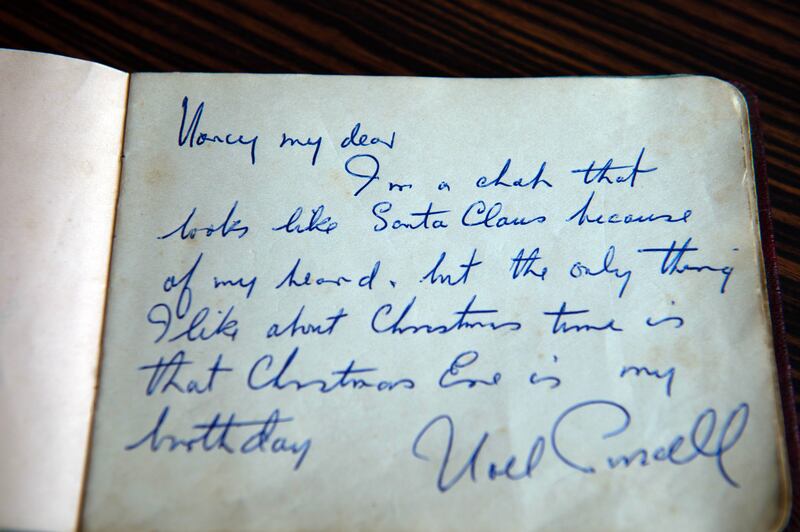 Nancy my dear
I'm a chap that
looks like Santa Claus because
of my beard. but the only thing
I like about Christmas time is
that Christmas Eve is my
birthday
Noel Purcell